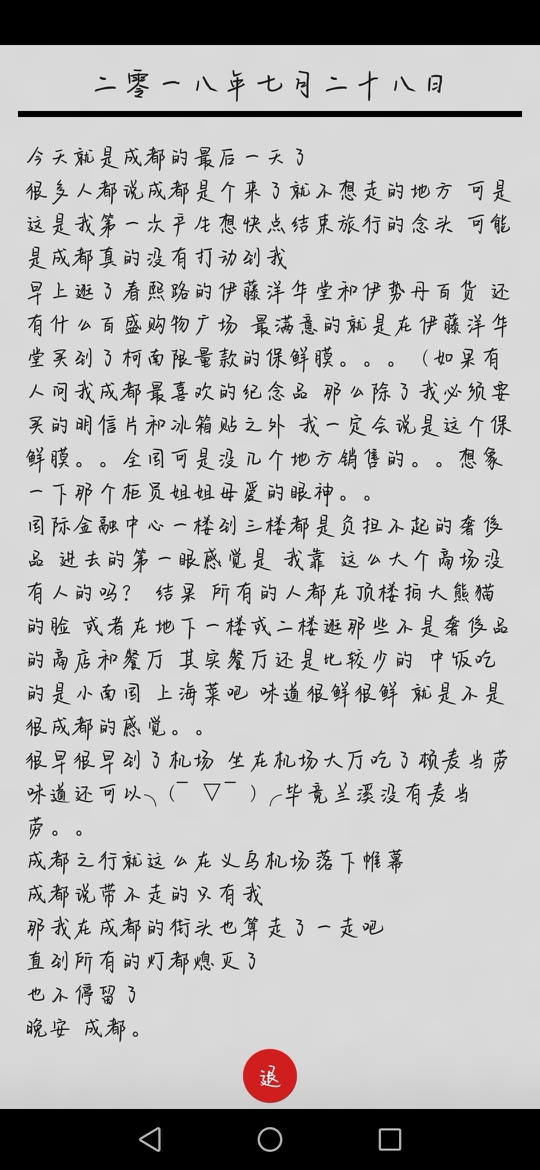 二零一八年七月二十八日
今天就是成都的最后一天了
很多人都说成都是个来了就不想走的地方 可是
这是我第一次产生想快点结束旅行的念头 可能
是成都真的没有打动到我
早上逛了春熙路的伊藤洋华堂和伊势丹百货 还
有什么百盛购物广场 最满意的就是在伊藤洋华
堂买到了柯南限量款的保鲜膜。。。（如果有
人问我成都最喜欢的纪念品 那么除了我必须要
买的明信片和冰箱贴之外 我一定会说是这个保
鲜膜。。全国可是没几个地方销售的。。想象
一下那个柜员姐姐母爱的眼神。。
国际金融中心一楼到三楼都是负担不起的奢侈
品 进去的第一眼感觉是 我靠 这么大个商场没
有人的吗？ 结果 所有的人都在顶楼拍大熊猫
的脸 或者在地下一楼或二楼逛那些不是奢侈品
的商店和餐厅 其实餐厅还是比较少的 中饭吃
的是小南国 上海菜吧 味道很鲜很鲜 就是不是
很成都的感觉。。
很早很早到了机场 坐在机场大厅吃了顿麦当劳
味道还可以╮(￣▽￣)╭毕竟兰溪没有麦当
劳。。
成都之行就这么在义乌机场落下帷幕
成都说带不走的只有我
那我在成都的街头也算走了一走吧
直到所有的灯都熄灭了
也不停留了
晚安 成都。
退